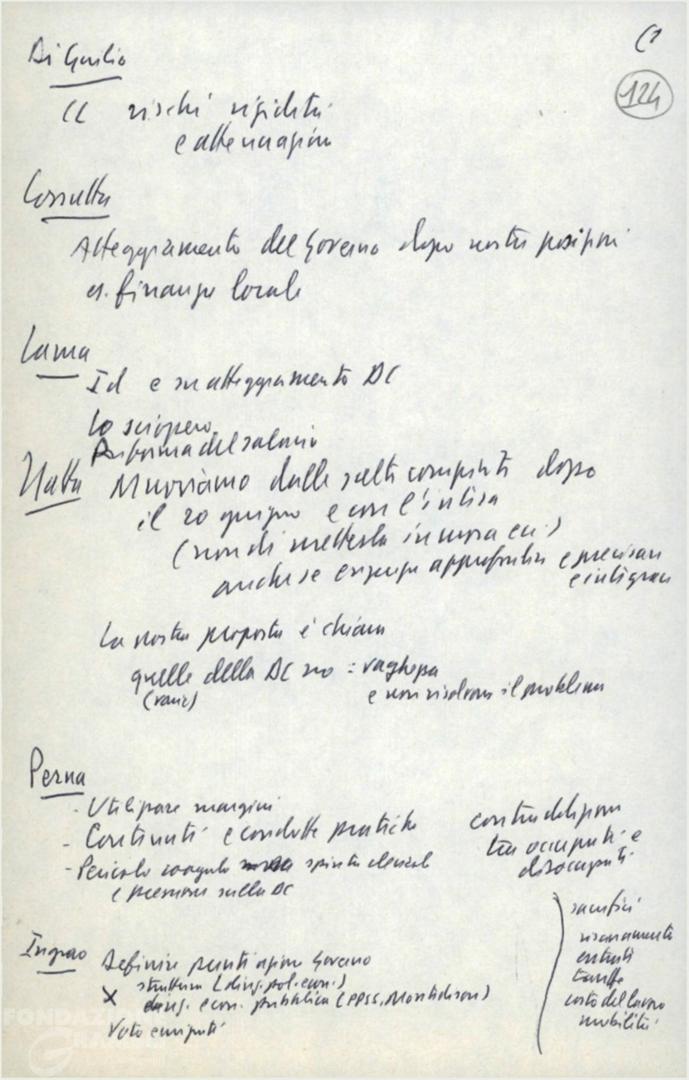 Di Giulio
CC rischi rigidità
e attenuazioni
Cossutta
Atteggiamento del Governo dopo nostre posizioni
es. finanza locale
Lama
Id e su atteggiamento DC
Lo sciopero
Riforma del salario
Natta Muoviamo dalle scelte compiute dopo
il 20 giugno e con l'intesa
(non di metterla in mora ecc)
anche se esigenza approfondire e precisare
e integrare
La nostra proposta è chiara
quelle della DC no = vaghezza
(varie) e non risolvono il problema
Perna
- Utilizzare margini
- Continuità e condotte pratiche
- Pericolo spinta elezioni
e pressioni sulla DC
contraddizioni
tra occupati e
disoccupati
sacrifici
risanamento
entrate
tariffe
costo del lavoro
mobilità
Ingrao Definire punti azione Governo
struttura (direz. pol. econ.)
X direz. econ. pubblica (PPSS, Montedison)
Voto emigrati
(2
124
FONDAZIONE
GRAMSCI